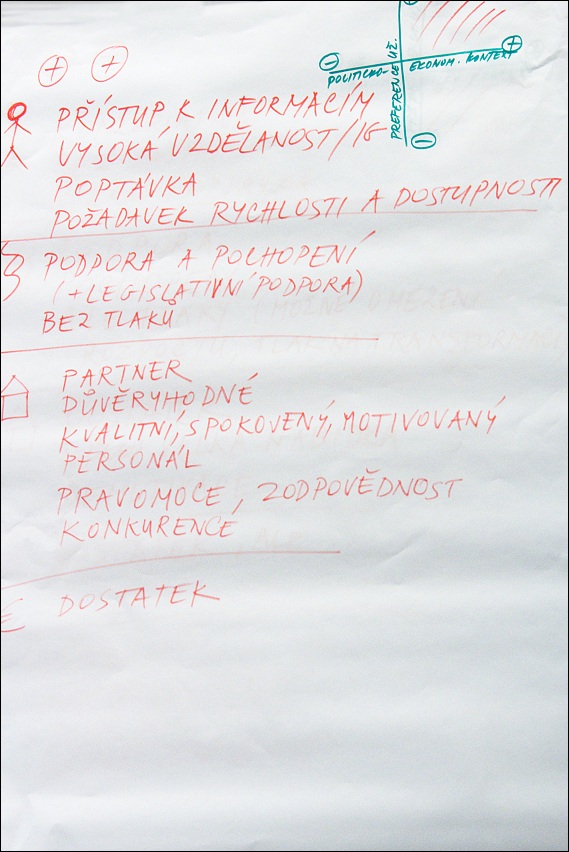 POLITICKO- EKONOM. KONTEXT
PREFERENCE UŽ.
PŘÍSTUP K INFORMACÍM
VYSOKÁ VZDĚLANOST/IG
POPTÁVKA
POŽADAVEK RYCHLOSTI A DOSTUPNOSTI
PODPORA A POCHOPENÍ
(+LEGISLATIVNÍ PODPORA)
BEZ TLAKU
PARTNER
DŮVĚRYHODNÉ
KVALITNÍ, SPOKOVENÝ, MOTIVOVANÝ
PERSONÁL
PRAVOMOCE, ZODPOVĚDNOST
KONKURENCE
€ DOSTATEK